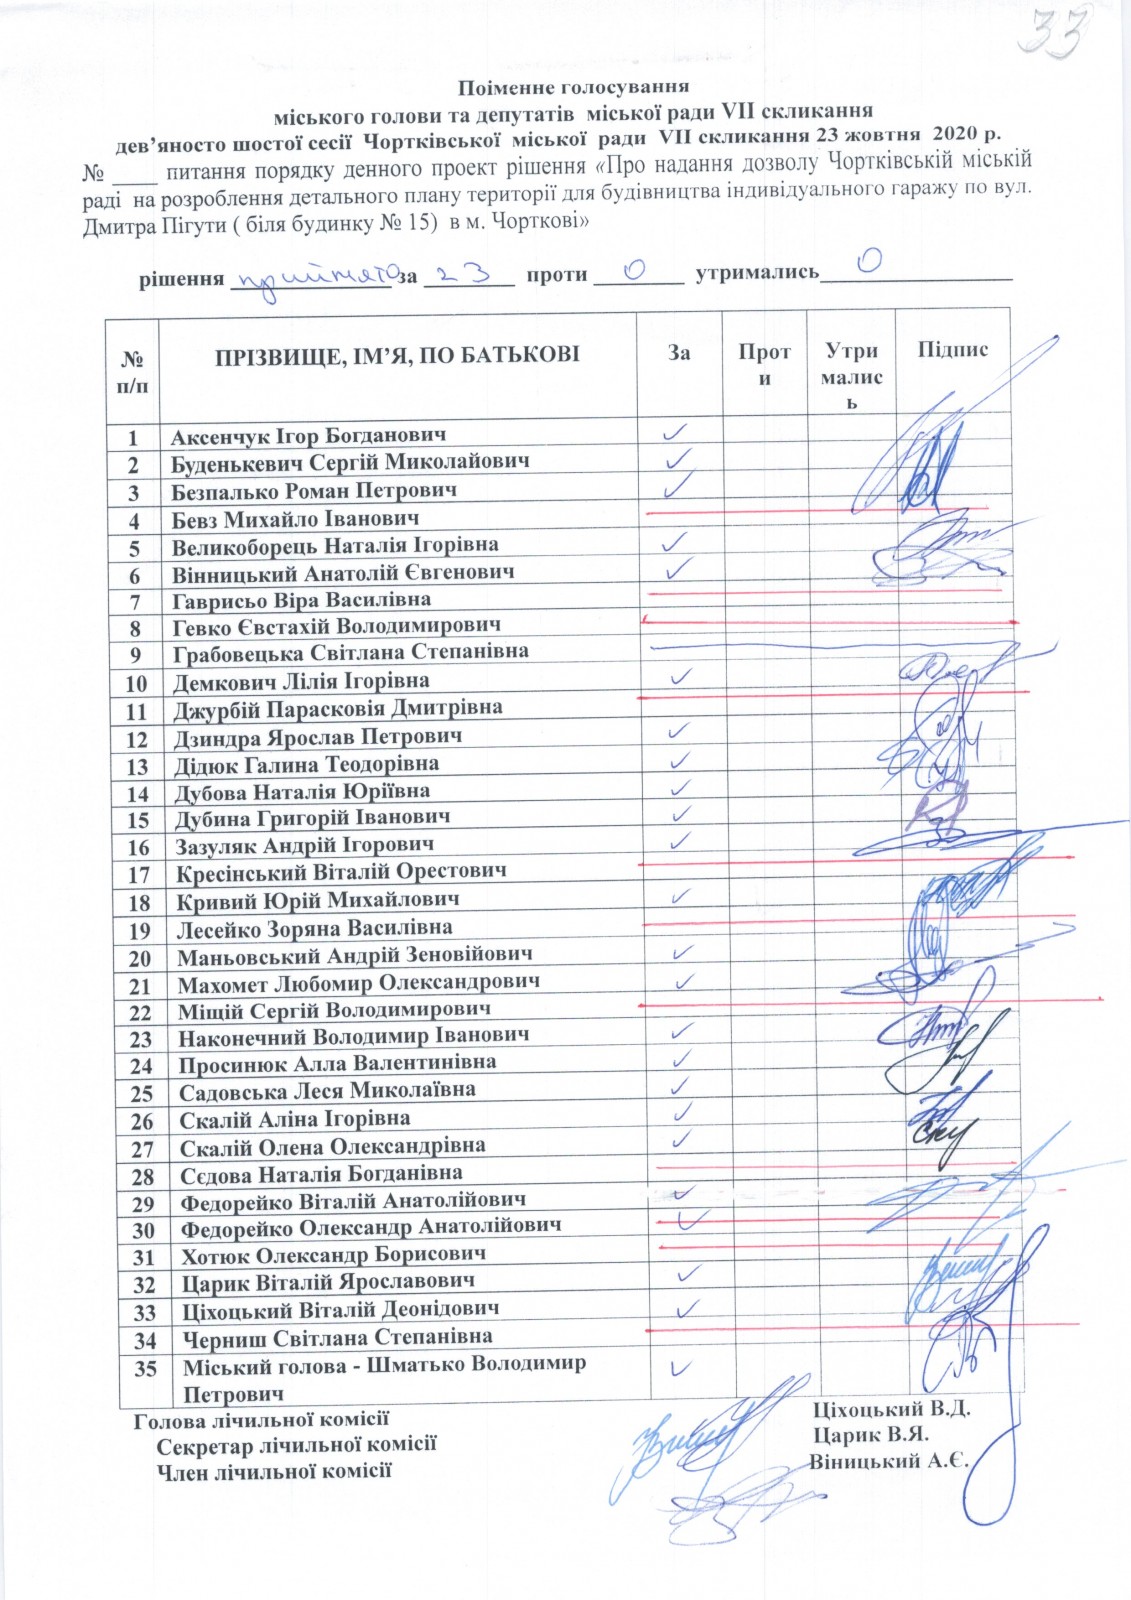 33
Поіменне голосування
міського голови та депутатів міської ради VII скликання
дев’яносто шостої сесії Чортківської міської ради VII скликання 23 жовтня 2020 р.
№ ____ питання порядку денного проект рішення «Про надання дозволу Чортківській міській
раді на розроблення детального плану території для будівництва індивідуального гаражу по вул.
Дмитра Пігути ( біля будинку № 15) в м. Чорткові»
рішення прийнято за 23 проти 0 утримались 0
№ п/п ПРІЗВИЩЕ, ІМ’Я, ПО БАТЬКОВІ За Проти Утримались Підпис
1 Аксенчук Ігор Богданович ✓
2 Буденькевич Сергій Миколайович ✓
3 Безпалько Роман Петрович ✓
4 Бевз Михайло Іванович
5 Великоборець Наталія Ігорівна ✓
6 Вінницький Анатолій Євгенович ✓
7 Гаврисьо Віра Василівна
8 Гевко Євстахій Володимирович
9 Грабовецька Світлана Степанівна
10 Демкович Лілія Ігорівна ✓
11 Джурбій Парасковія Дмитрівна
12 Дзиндра Ярослав Петрович ✓
13 Дідюк Галина Теодорівна ✓
14 Дубова Наталія Юріївна ✓
15 Дубина Григорій Іванович ✓
16 Зазуляк Андрій Ігорович ✓
17 Кресінський Віталій Орестович
18 Кривий Юрій Михайлович ✓
19 Лесейко Зоряна Василівна
20 Маньовський Андрій Зеновійович ✓
21 Махомет Любомир Олександрович ✓
22 Міщій Сергій Володимирович
23 Наконечний Володимир Іванович ✓
24 Просинюк Алла Валентинівна ✓
25 Садовська Леся Миколаївна ✓
26 Скалій Аліна Ігорівна ✓
27 Скалій Олена Олександрівна ✓
28 Сєдова Наталія Богданівна
29 Федорейко Віталій Анатолійович ✓
30 Федорейко Олександр Анатолійович ✓
31 Хотюк Олександр Борисович
32 Царик Віталій Ярославович ✓
33 Ціхоцький Віталій Деонідович ✓
34 Черниш Світлана Степанівна
35 Міський голова - Шматько Володимир ✓
Петрович
Голова лічильної комісії Ціхоцький В.Д.
Секретар лічильної комісії Царик В.Я.
Член лічильної комісії Віницький А.Є.